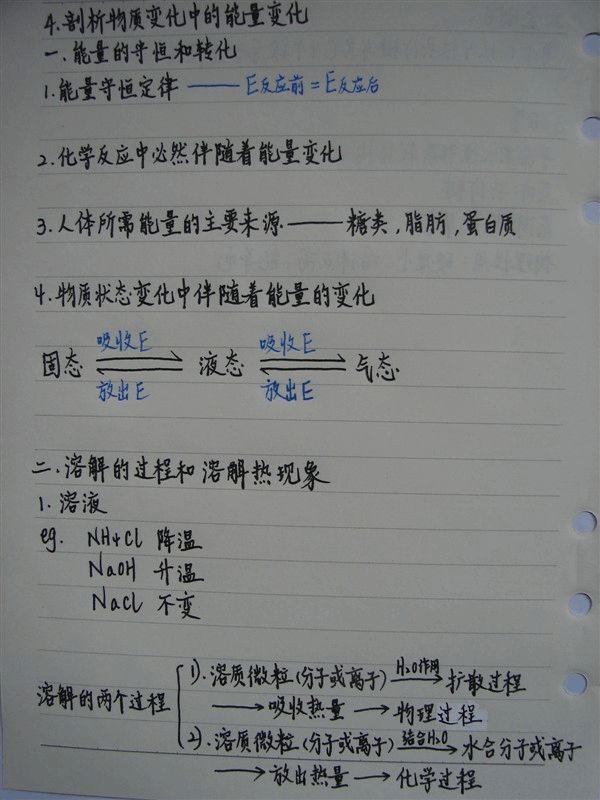 4.剖析物质变化中的能量变化
一.能量的守恒和转化
1.能量守恒定律 —— E反应前=E反应后
2.化学反应中必然伴随着能量变化
3.人体所需能量的主要来源——糖类,脂肪,蛋白质
4.物质状态变化中伴随着能量的变化
吸收E 吸收E
固态 ⇌ 液态 ⇌ 气态
放出E 放出E
二.溶解的过程和溶解热现象
1.溶液
eg. NH4Cl 降温
NaOH 升温
NaCl 不变
溶解的两个过程
1).溶质微粒(分子或离子) H2O作用→ 扩散过程
→吸收热量→物理过程
2).溶质微粒(分子或离子) 结合H2O→ 水合分子或离子
→放出热量→化学过程